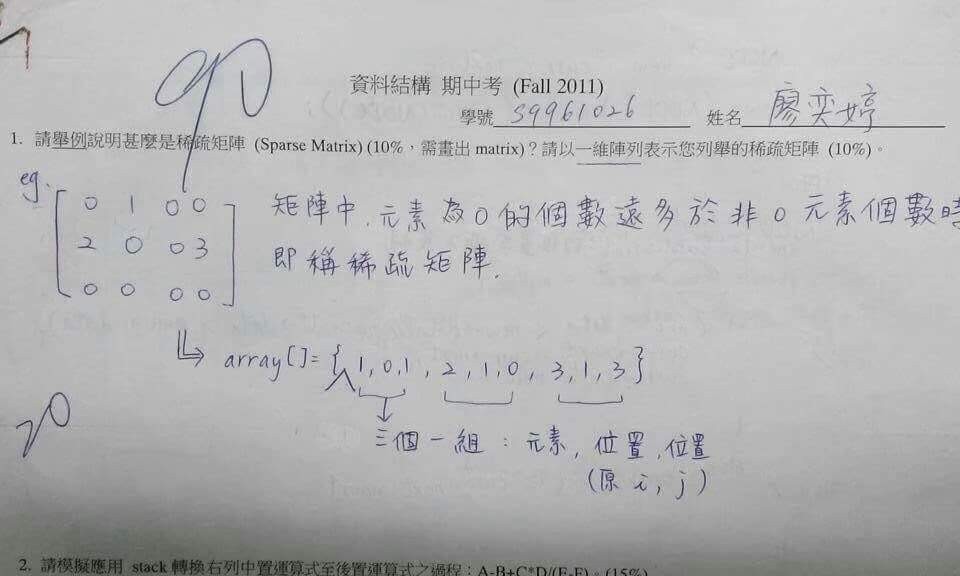 90
資料結構 期中考 (Fall 2011)
學號 S9961026 姓名 廖奕婷
1. 請舉例說明甚麼是稀疏矩陣 (Sparse Matrix) (10%，需畫出 matrix)？請以一維陣列表示您列舉的稀疏矩陣 (10%)。
eg.
0 1 0 0
2 0 0 3
0 0 0 0
矩陣中,元素為0的個數遠多於非0元素個數時
即稱稀疏矩陣.
array[]={1,0,1, 2,1,0, 3,1,3}
20
三個一組：元素, 位置, 位置
(原 i, j)
2. 請模擬應用 stack 轉換右列中置運算式至後置運算式之過程：A-B+C*D/(E-F)。(15%)